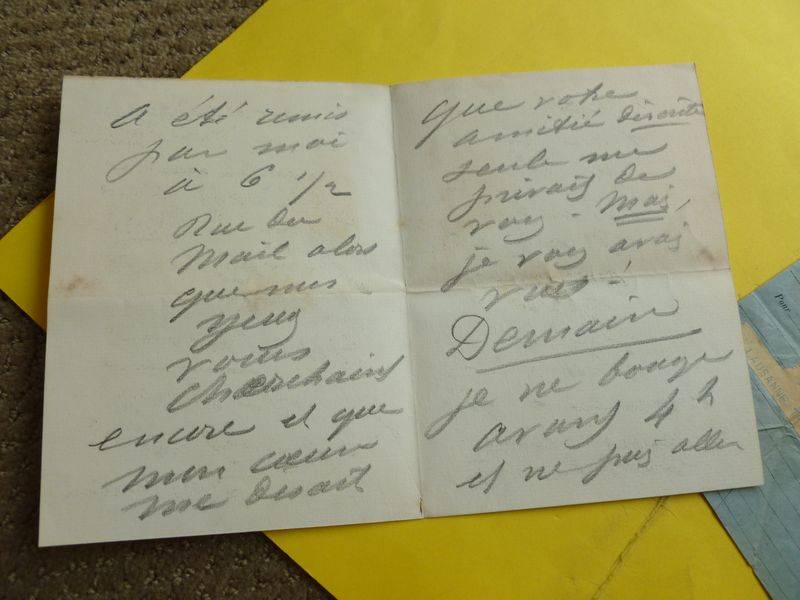 A été remis
par moi
à 6 1/2
Rue du
Mail alors
que mes
yeux
vous
cherchains
encore et que
mon cœur
me disait
que votre
amitié discrète
seule me
privais de
vous. Mais,
je vous avais
vus!
Demain
je ne bouge
avant 4 h
et ne puis aller
Pour
LAUSANNE